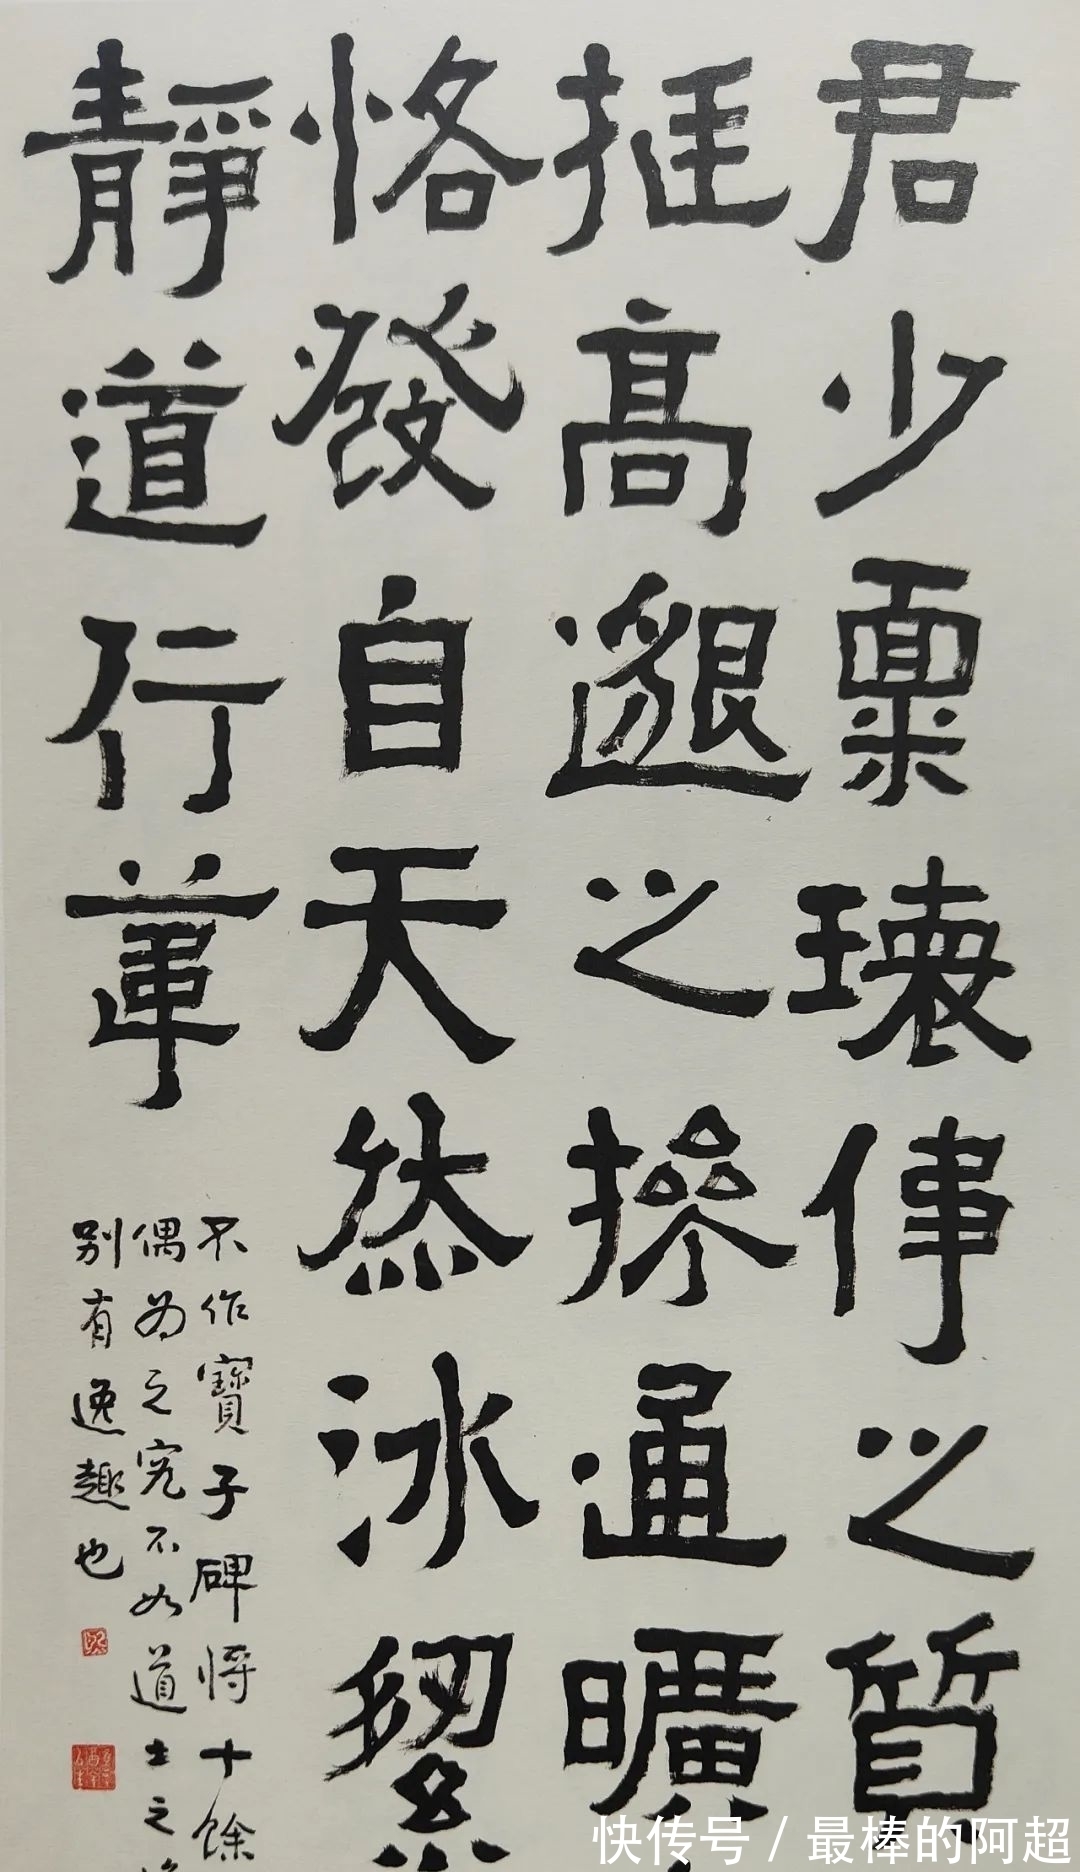 君少禀瓌偉之質
挺高邈之操通曠
恪發自天然冰絜
靜道行葦
不作寶子碑將十餘
偶為之究不如道士之
别有逸趣也
快传号 / 最棒的阿超